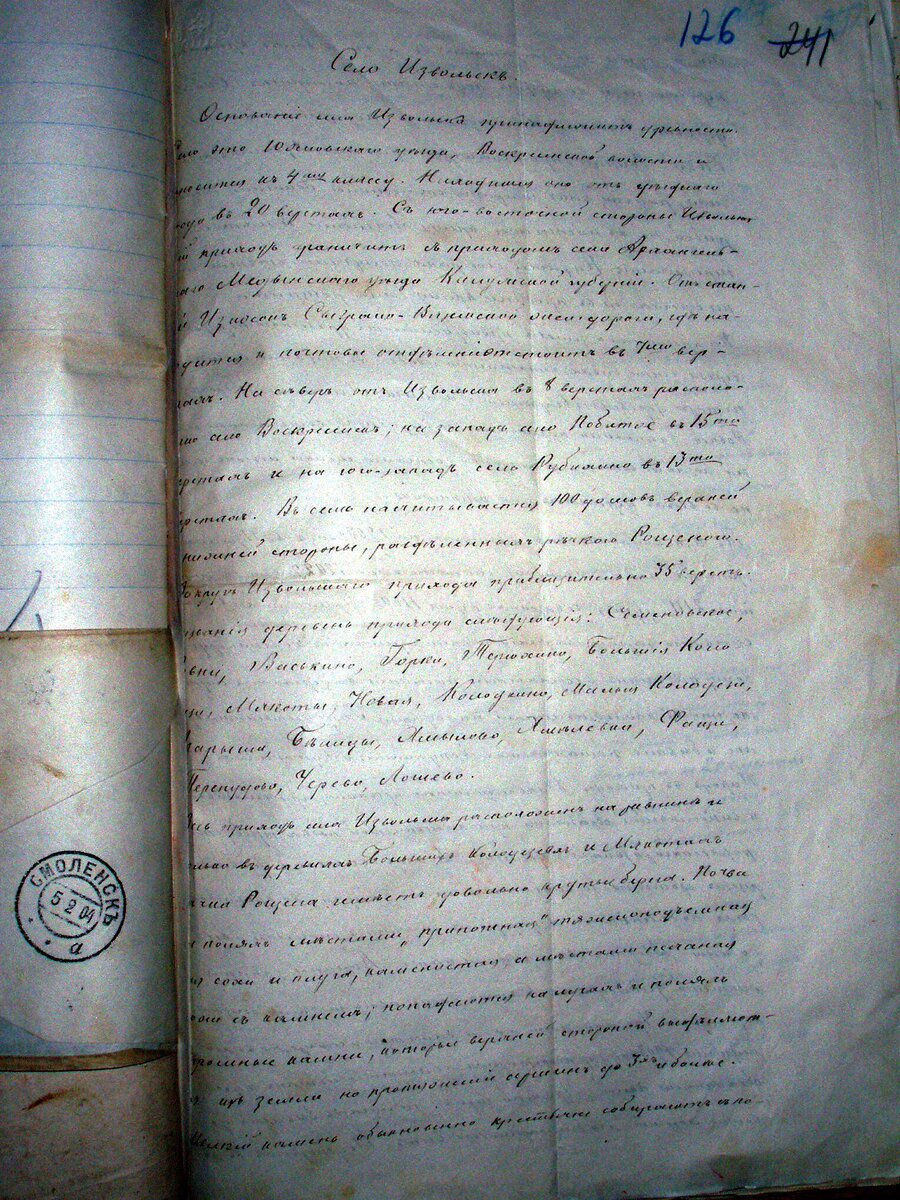 126 241
Село Извольскъ.
Основанiе села Извольска принадлежитъ древности.
это Юхновскаго уѣзда, Воскресенской волости и
носится къ 4му классу. Находится оно отъ уѣзднаго
въ 20 верстахъ. Съ юго-восточной стороны Извольс
приходъ граничитъ съ приходомъ села Архангель-
Медынскаго уѣзда Калужской губернiи. Отъ стан-
Износки Сызрано-Вяземской жел. дороги, гдѣ на-
дится и почтовое отдѣленiе отстоитъ въ 7ми вер-
На сѣверъ отъ Извольска въ 8 верстахъ располо-
село Воскресенскъ; на западъ село въ 15ти
верстахъ и на юго-западъ село Рубихино въ 13ти
верстахъ. Въ селѣ насчитывается 100 домовъ верхней
нижней стороны, раздѣленныхъ рѣчкою Рощенскою.
Вокругъ Извольскаго прихода приблизительно 35 верстъ.
Названiя деревень прихода слѣдующiя: Семеновское,
Васькино, Горки, Терюхино, Большiя Коло
Мякоты, Новая, Колодкино, Малыя Колодези,
Бѣлицы, Ямылово, Фаще,
Черево, Лошево.
приходъ села Извольска расположенъ на равнинѣ и
только въ деревняхъ Большихъ Колодезяхъ и Мякотахъ
рѣчка Рощена имѣетъ довольно крутые берега. Почва
полямъ мѣстами тяжелоподъемная
для сохи и плуга, каменистая, а мѣстами песчаная
съ камнемъ; попадаются на лугахъ и поляхъ
громные камни, которые верхней стороной выдѣляют-
изъ земли на аршинъ до 3хъ и более.
Мелкiй камень обыкновенно крестьяне собираютъ съ по-
СМОЛЕНСКЪ
5 2 04
а